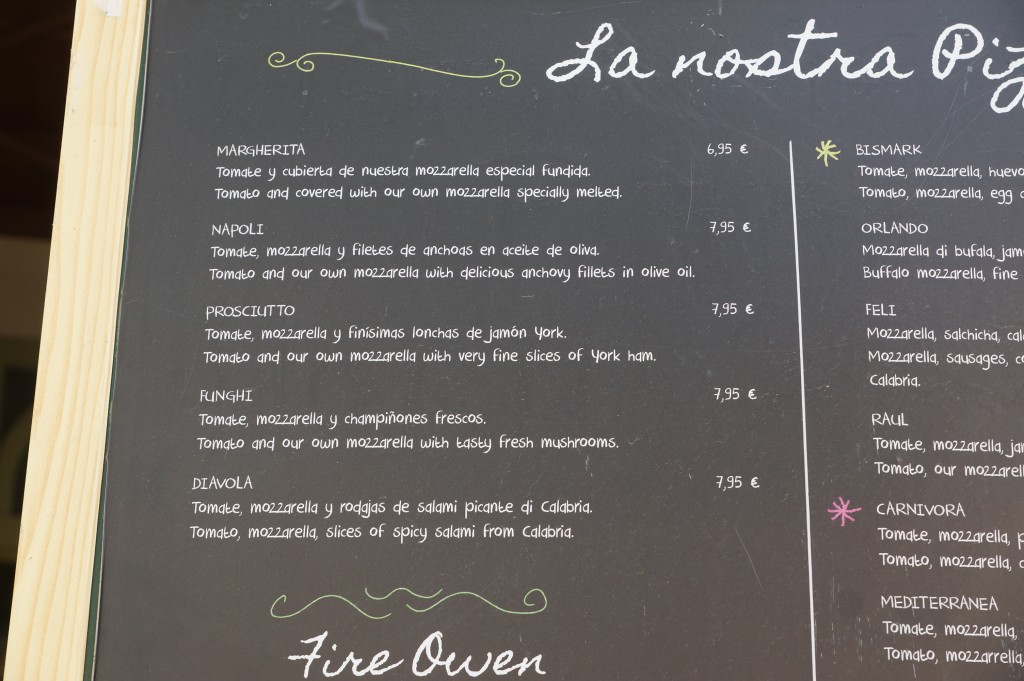 La nostra Piz
MARGHERITA 6,95 €
Tomate y cubierta de nuestra mozzarella especial fundida.
Tomato and covered with our own mozzarella specially melted.
NAPOLI 7,95 €
Tomate, mozzarella y filetes de anchoas en aceite de oliva.
Tomato and our own mozzarella with delicious anchovy fillets in olive oil.
PROSCIUTTO 7,95 €
Tomate, mozzarella y finísimas lonchas de jamón York.
Tomato and our own mozzarella with very fine slices of York ham.
FUNGHI 7,95 €
Tomate, mozzarella y champiñones frescos.
Tomato and our own mozzarella with tasty fresh mushrooms.
DIAVOLA 7,95 €
Tomate, mozzarella y rodgjas de salami picante di Calabria.
Tomato, mozzarella, slices of spicy salami from Calabria.
Fire Owen
BISMARK
Tomate, mozzarella, huevo
Tomato, mozzarella, egg
ORLANDO
Mozzarella di bufala, jam
Buffalo mozzarella, fine
FELI
Mozzarella, salchicha, cal
Mozzarella, sausages, c
Calabria.
RAUL
Tomate, mozzarella, jar
Tomato, our mozzarel
CARNIVORA
Tomate, mozzarella, p
Tomato, mozzarella,
MEDITERRANEA
Tomate, mozzarella,
Tomato, mozzarrella,